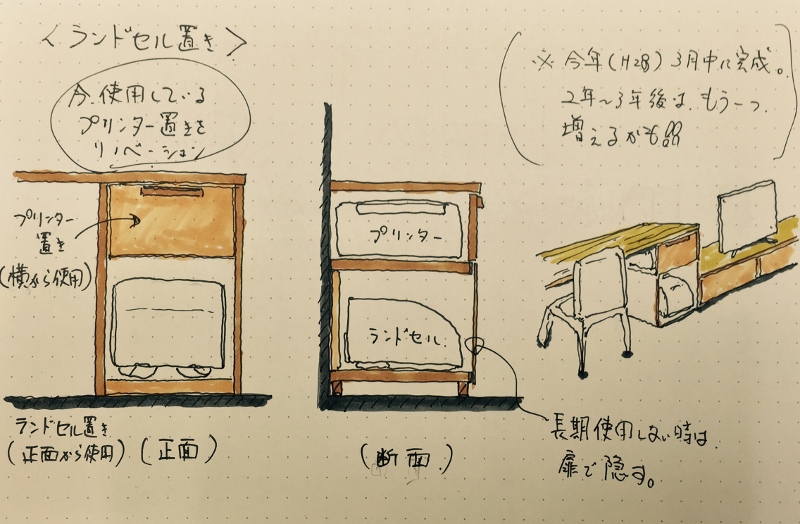 <ランドセル置き>
今、使用している
プリンター置きを
リノベーション
※ 今年(H28) 3月中に完成。
2年〜3年後は、もう一つ
増えるかも!!
プリンター
置き
(横から使用)
プリンター
ランドセル
ランドセル置き
(正面から使用)
(正面)
(断面)
長期使用しない時は
扉で隠す。